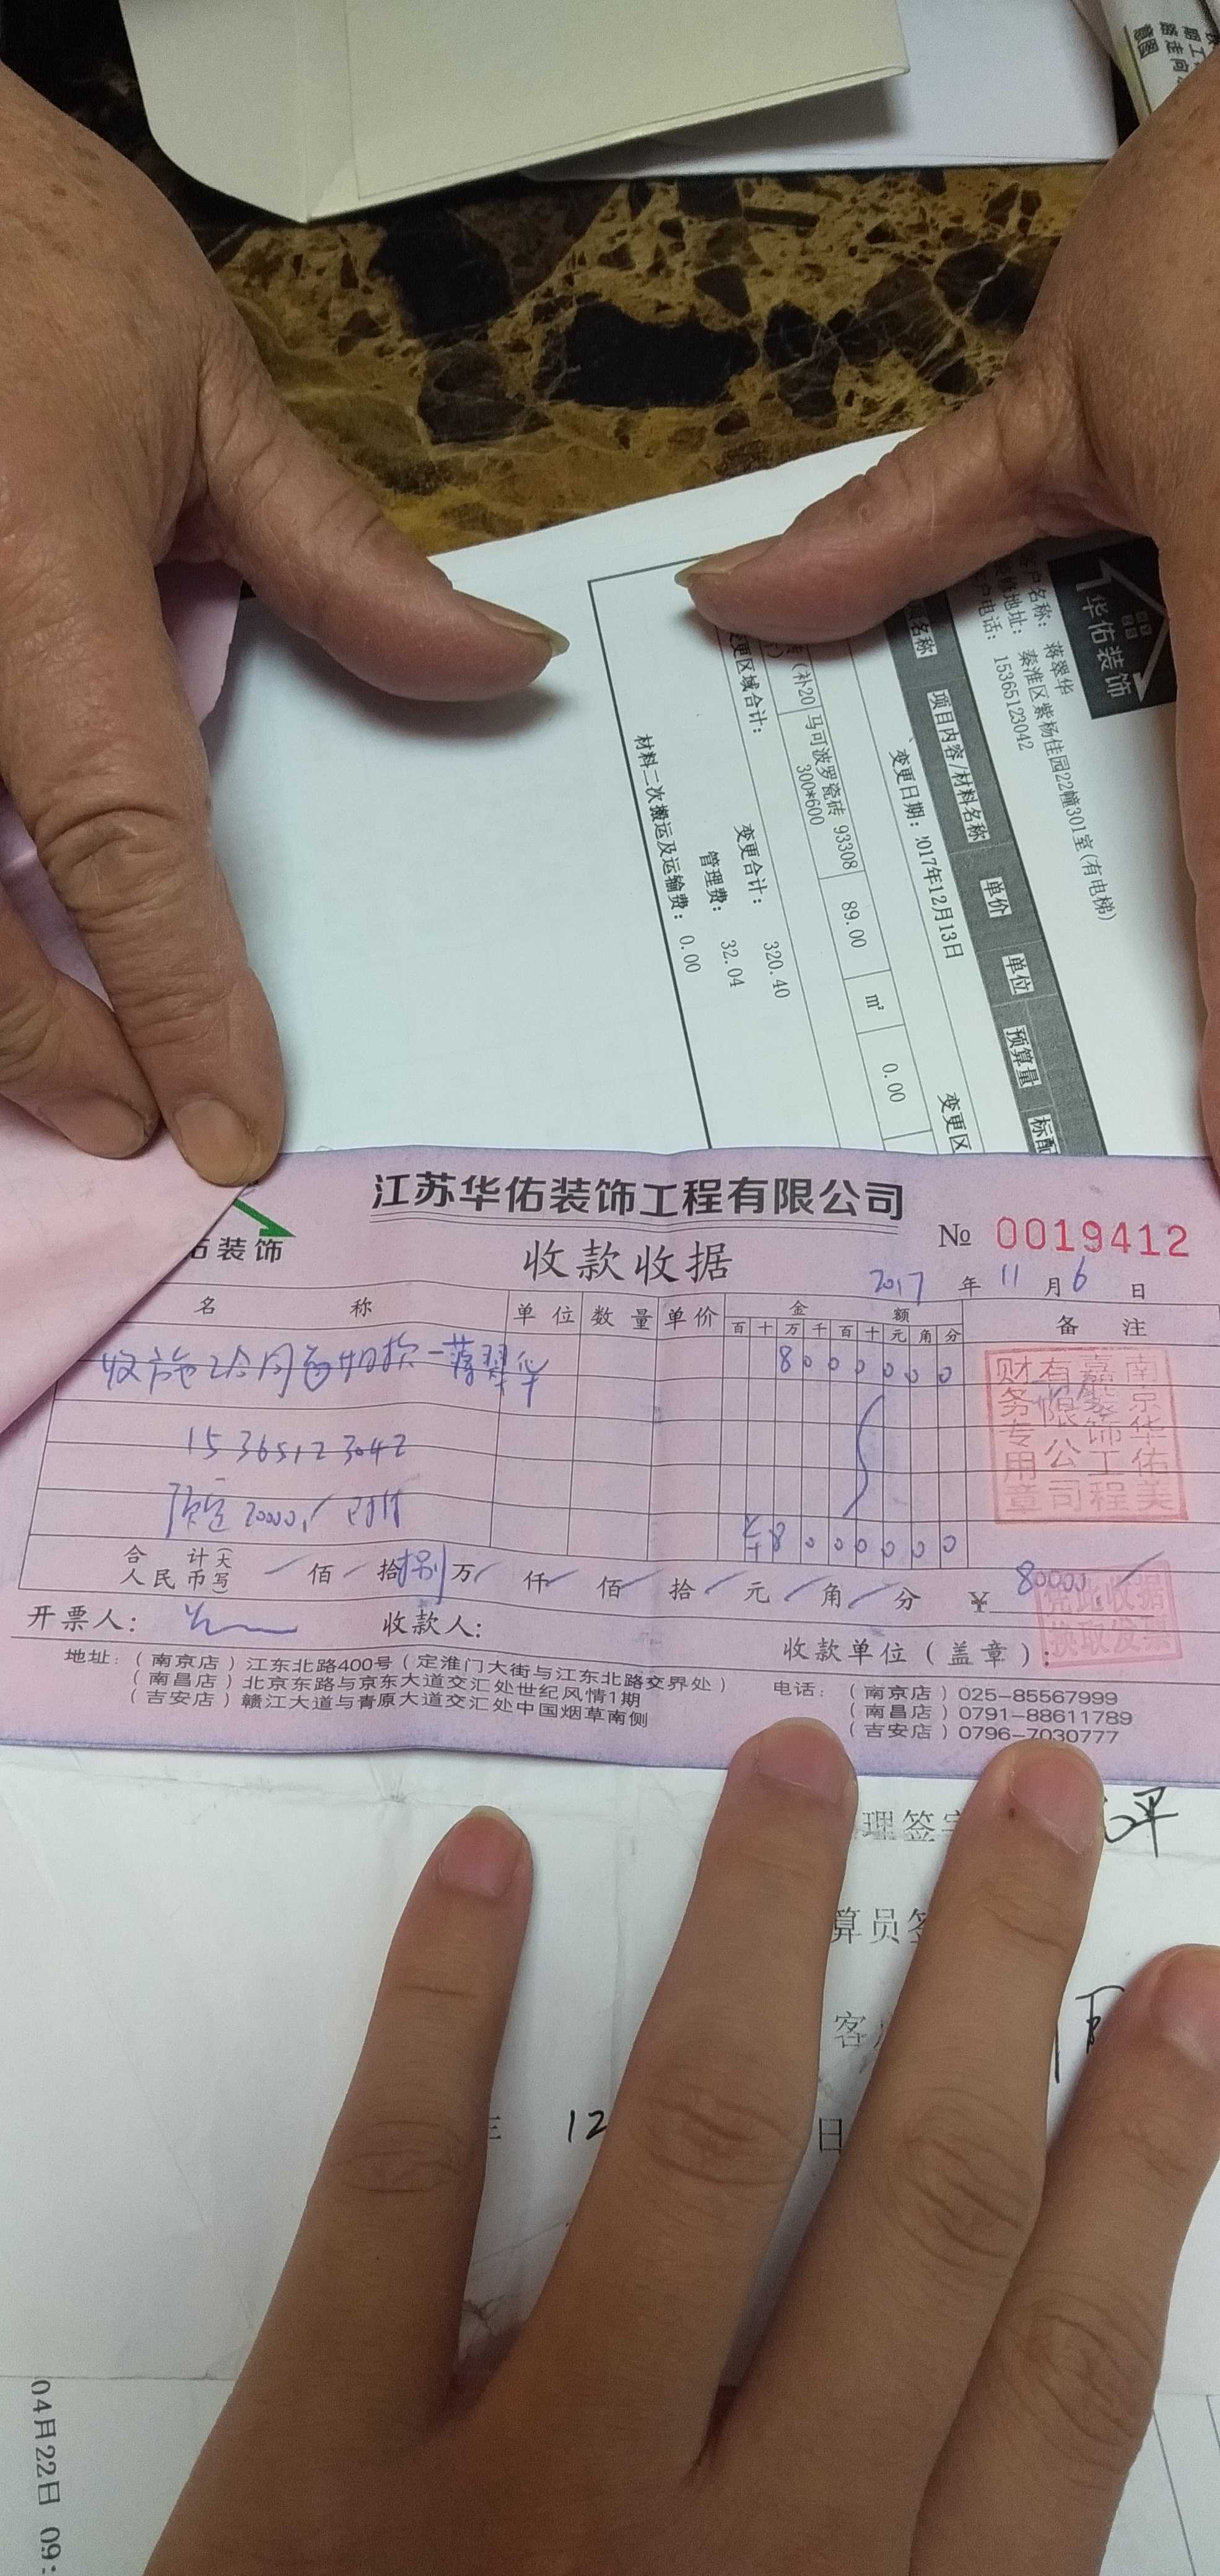 期工
路走向
意图
华佑装饰
客户名称： 蒋翠华
装修地址： 秦淮区紫杨佳园22幢301室(有电梯)
客户电话： 15365123042
变更日期： 017年12月13日
变更区
名称 项目内容/材料名称 单价 单位 预算量 标配
(补20 马可波罗瓷砖 93308 300*600 89.00 m² 0.00
变更区域合计：
变更合计： 320.40
管理费： 32.04
材料二次搬运及运输费： 0.00
江苏华佑装饰工程有限公司
佑装饰
收款收据
№ 0019412
2017 年 11 月 6 日
名 称 单位 数量 单价 金 额 备 注
百 十 万 千 百 十 元 角 分
收施工合同首期款-蒋翠华 8 0 0 0 0 0 0
15365123042
预定20000
¥ 8 0 0 0 0 0 0
南京华佑美嘉装饰工程有限公司财务专用章
合 计(大写)
人民币 佰 拾 捌 万 仟 佰 拾 元 角 分 ¥ 80000
凭此收据
换取发票
开票人： 收款人:
收款单位（盖章）:
地址：（南京店）江东北路400号（定淮门大街与江东北路交界处）
（南昌店）北京东路与京东大道交汇处世纪风情1期
（吉安店）赣江大道与青原大道交汇处中国烟草南侧
电话：（南京店）025-85567999
（南昌店）0791-88611789
（吉安店）0796-7030777
理签字
平
算员签
客
12 日
04月22日 09: